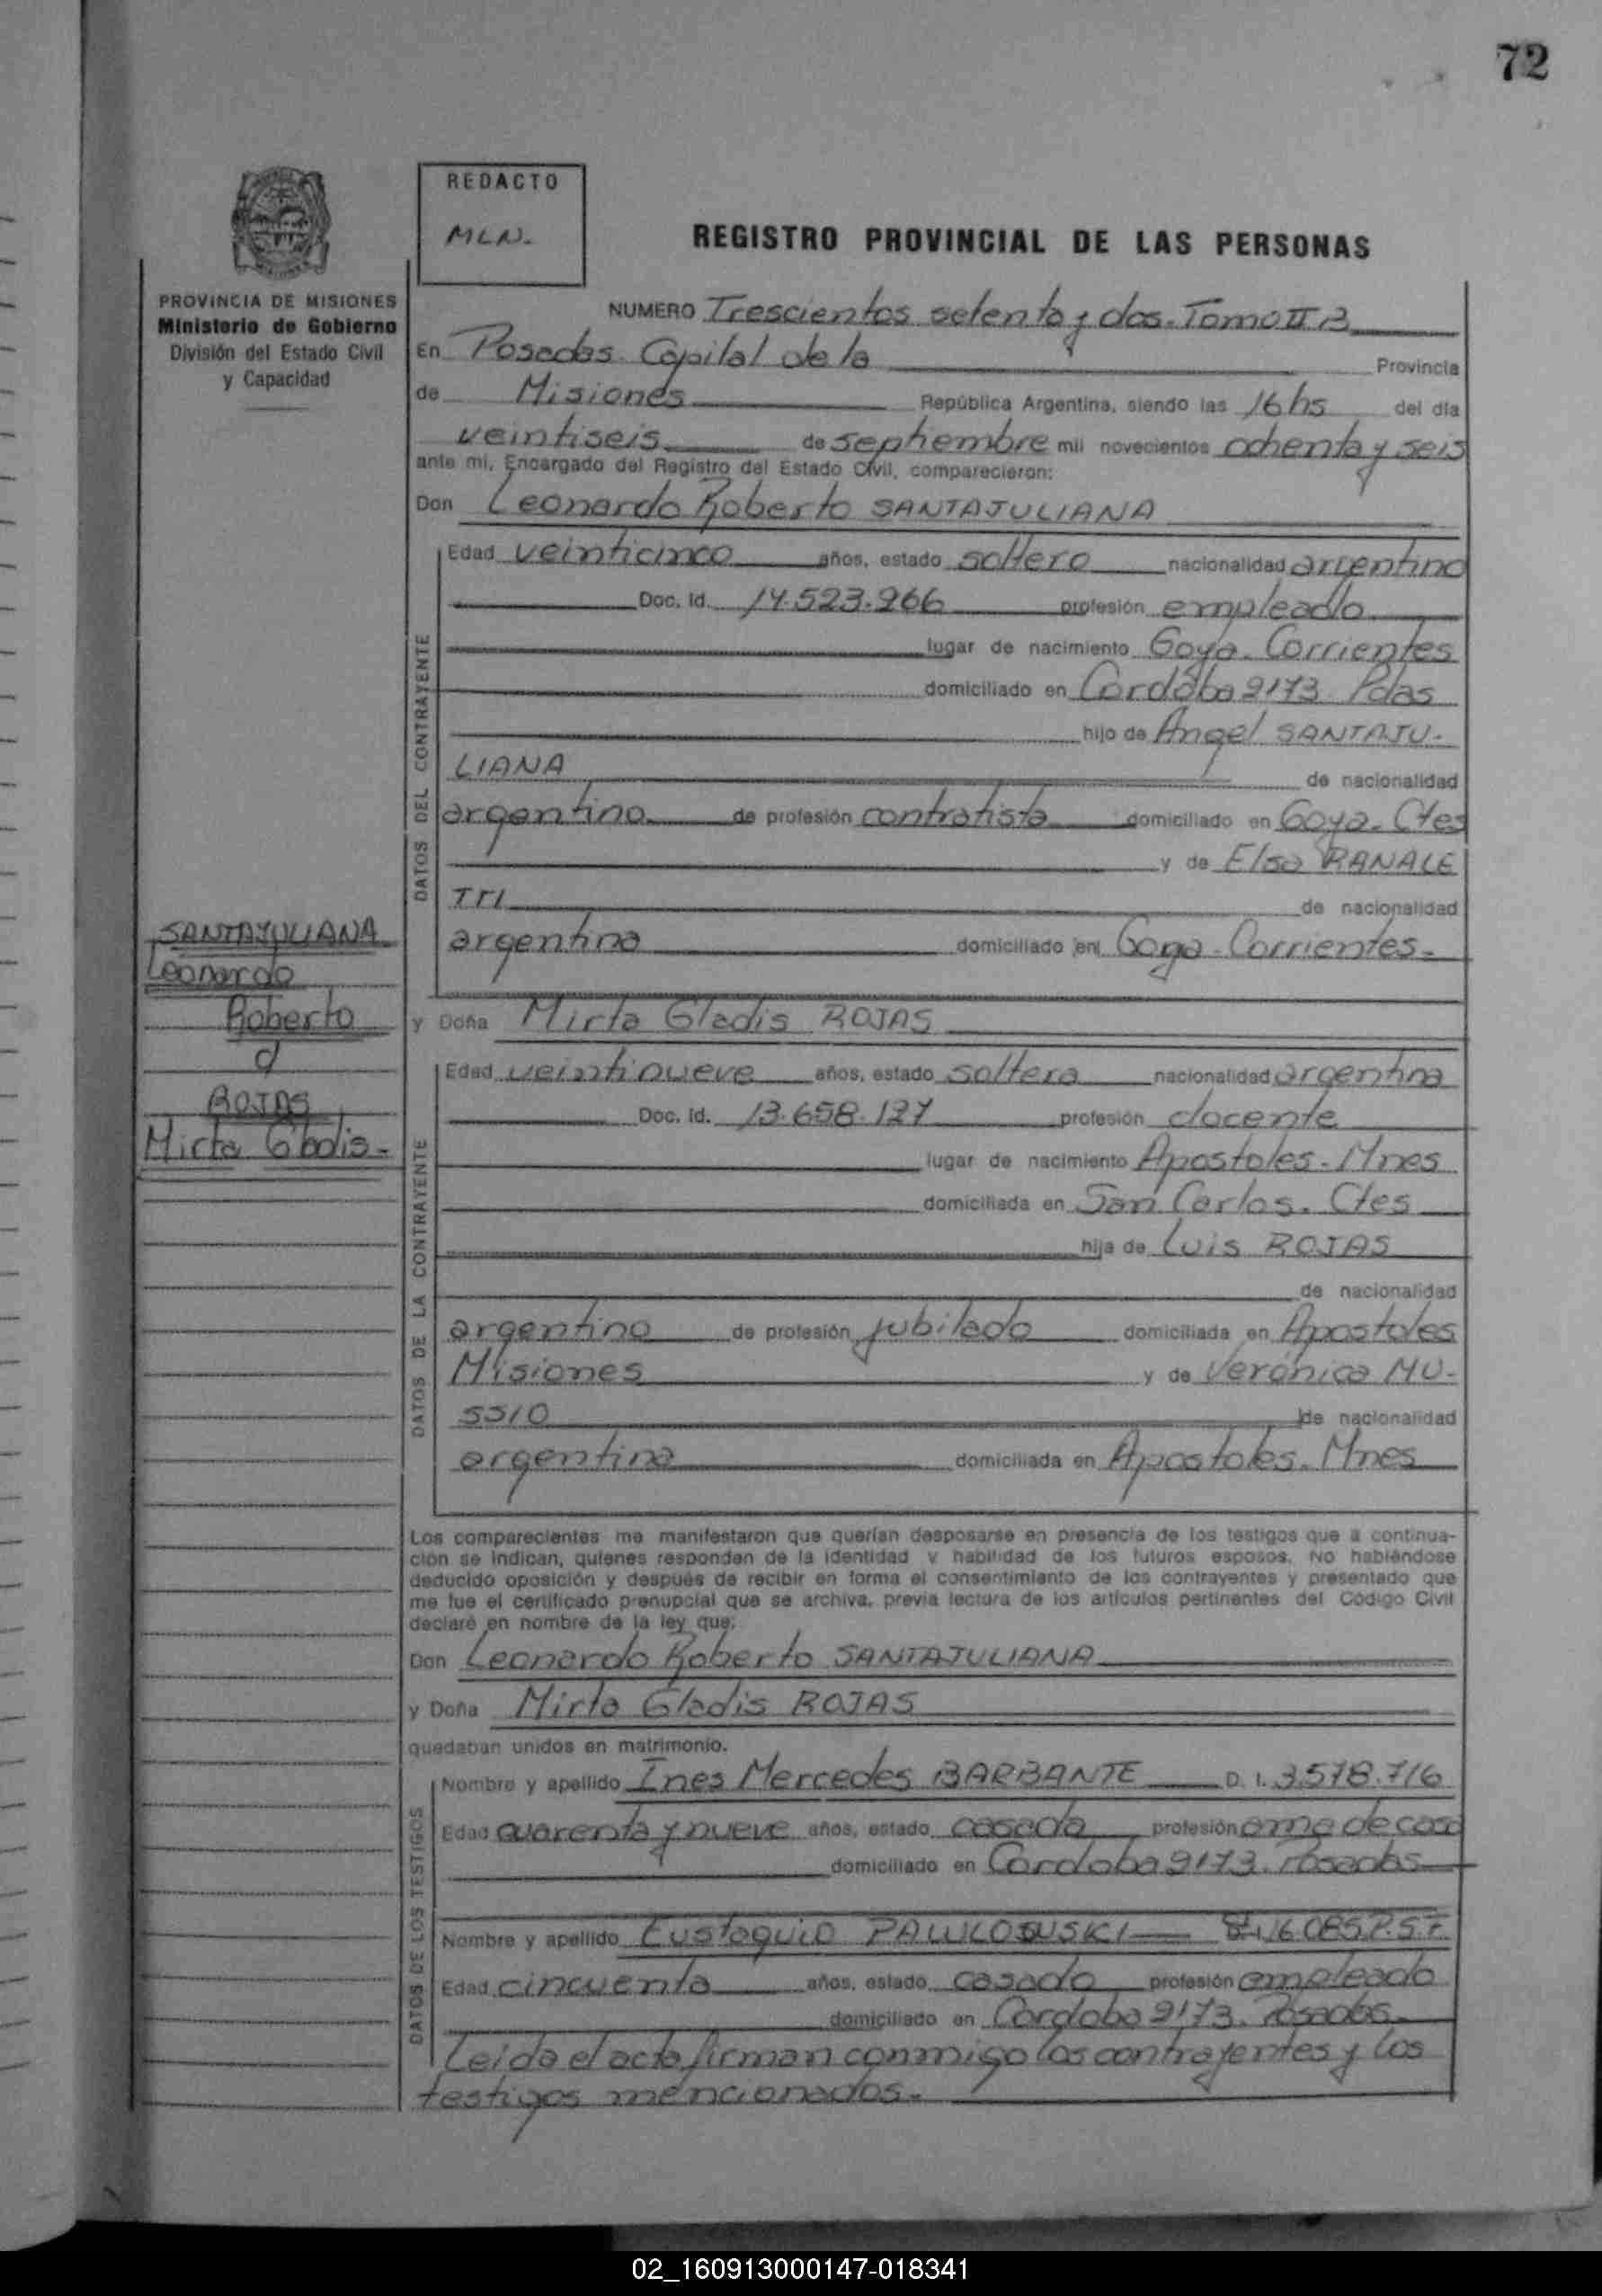 72
REDACTO
MLN.
REGISTRO PROVINCIAL DE LAS PERSONAS
PROVINCIA DE MISIONES
Ministerio de Gobierno
División del Estado Civil
y Capacidad
NUMERO Trescientos setenta y dos. Tomo II B
En Posadas. Capital de la Provincia
de Misiones República Argentina, siendo las 16 hs del día
veintiseis de septiembre mil novecientos ochenta y seis
ante mi, Encargado del Registro del Estado Civil, comparecieron:
Don Leonardo Roberto SANTAJULIANA
DATOS DEL CONTRAYENTE
Edad veinticinco años, estado soltero nacionalidad argentino
Doc. Id. 14.523.266 profesión empleado
lugar de nacimiento Goya. Corrientes
domiciliado en Cordoba 2173 Pdas
hijo de Angel SANTAJU-
LIANA de nacionalidad
argentino de profesión contratista domiciliado en Goya. Ctes
y de Elsa RANALE
TTI de nacionalidad
argentina domiciliado en Goya - Corrientes-
SANTAJULIANA
Leonardo
Roberto
c/
ROJAS
Mirta Gladis-
y Doña Mirta Gladis ROJAS
DATOS DE LA CONTRAYENTE
Edad veintinueve años, estado soltera nacionalidad argentina
Doc. Id. 13.658.127 profesión docente
lugar de nacimiento Apostoles - Mnes
domiciliada en San Carlos. Ctes
hija de Luis ROJAS
de nacionalidad
argentino de profesión jubilado domiciliada en Apostoles
Misiones y de Verónica MU-
SSIO de nacionalidad
argentina domiciliada en Apostoles. Mnes
Los comparecientes me manifestaron que querían desposarse en presencia de los testigos que a continua-
ción se indican, quienes responden de la identidad y habilidad de los futuros esposos. No habiéndose
deducido oposición y después de recibir en forma el consentimiento de los contrayentes y presentado que
me fue el certificado prenupcial que se archiva, previa lectura de los artículos pertinentes del Código Civil
declaré en nombre de la ley que:
Don Leonardo Roberto SANTAJULIANA
y Doña Mirta Gladis ROJAS
quedaban unidos en matrimonio.
DATOS DE LOS TESTIGOS
Nombre y apellido Ines Mercedes BARBANTE D. I. 3.578.716
Edad cuarenta y nueve años, estado casada profesión ama de casa
domiciliado en Cordoba 2173. Posadas
Nombre y apellido Eustaquio
Edad cincuenta años, estado casado profesión empleado
domiciliado en Cordoba 2173. Posadas-
Leida el acta firman conmigo los contrayentes y los
testigos mencionados.-
02_160913000147-018341